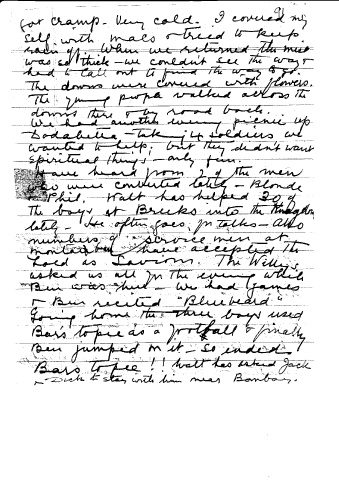 for cramp. Very cold. I covered my
self with macs & tried to keep
rain off. When we returned the mist
was so thick - we couldn't see the way &
had to call out to find the way to go.
The downs were covered with flowers.
The young people walked across the
downs there & by road back.
We had another evening picnic up
Dodabetta - taking 4 soldiers we
wanted to help, but they didn't want
spiritual things - only fun.
Have heard from 2 of the men
who were converted lately - Blonde
& Phil. Walt has helped 30 of
the boys at Breeks into the Kingdom
lately - He often goes for talks - Also
numbers of service men at
have accepted the
Lord as Saviour. The
asked us all for the evening while
Ben was here - We had Games
& Ben recited "Bluebeard"
Going home the three boys used
Bar's topee as a football & finally
Ben jumped on it - So ended
Bar's topee!! Walt has asked Jack
& Dick to stay with him near Bombay.